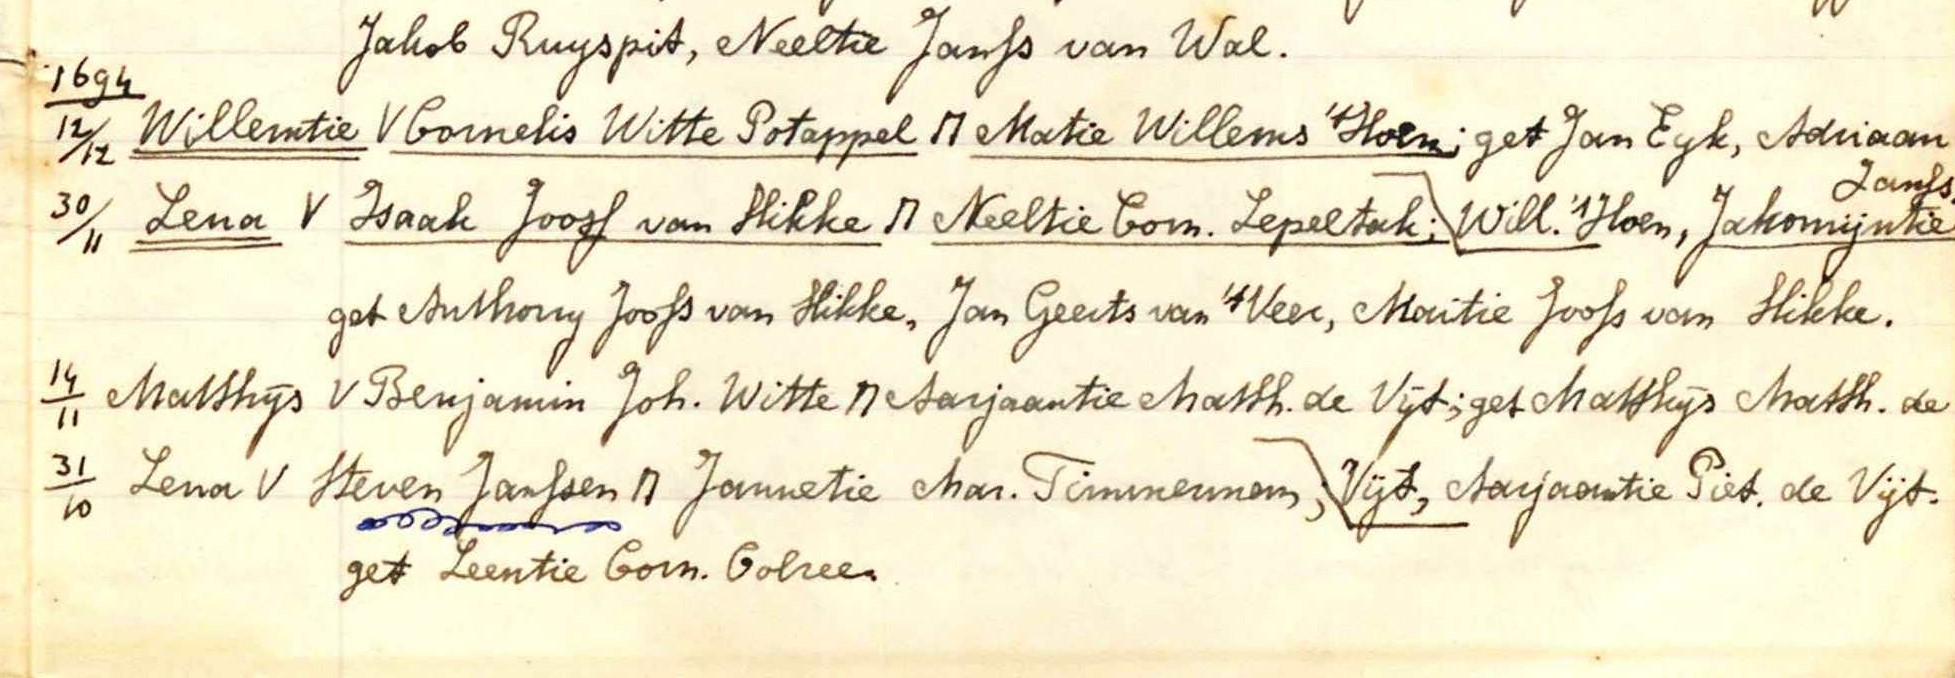 Jakob Ruyspit, Neeltie Janss van Wal.
1694
12/12 Willemtie V Cornelis Witte Potappel M Matie Willems 't Hoen; get Jan Eyk, Adriaan
Janss.
30/11 Lena V Isaak Jooss van Slikke M Neeltie Corn. Lepeltak; Will. 't Hoen, Jakomijntie
get Anthony Jooss van Slikke, Jan Geerts van 't Veer, Maitie Jooss van Slikke.
14/11 Matthijs V Benjamin Joh. Witte M Aarjaantie Matth. de Vijt; get Matthijs Matth. de
31/10 Lena V Steven Janssen M Jannetie Mar. Timmerman; Vijt, Aarjaantie Piet. de Vijt.
get Leentie Corn. Colree.